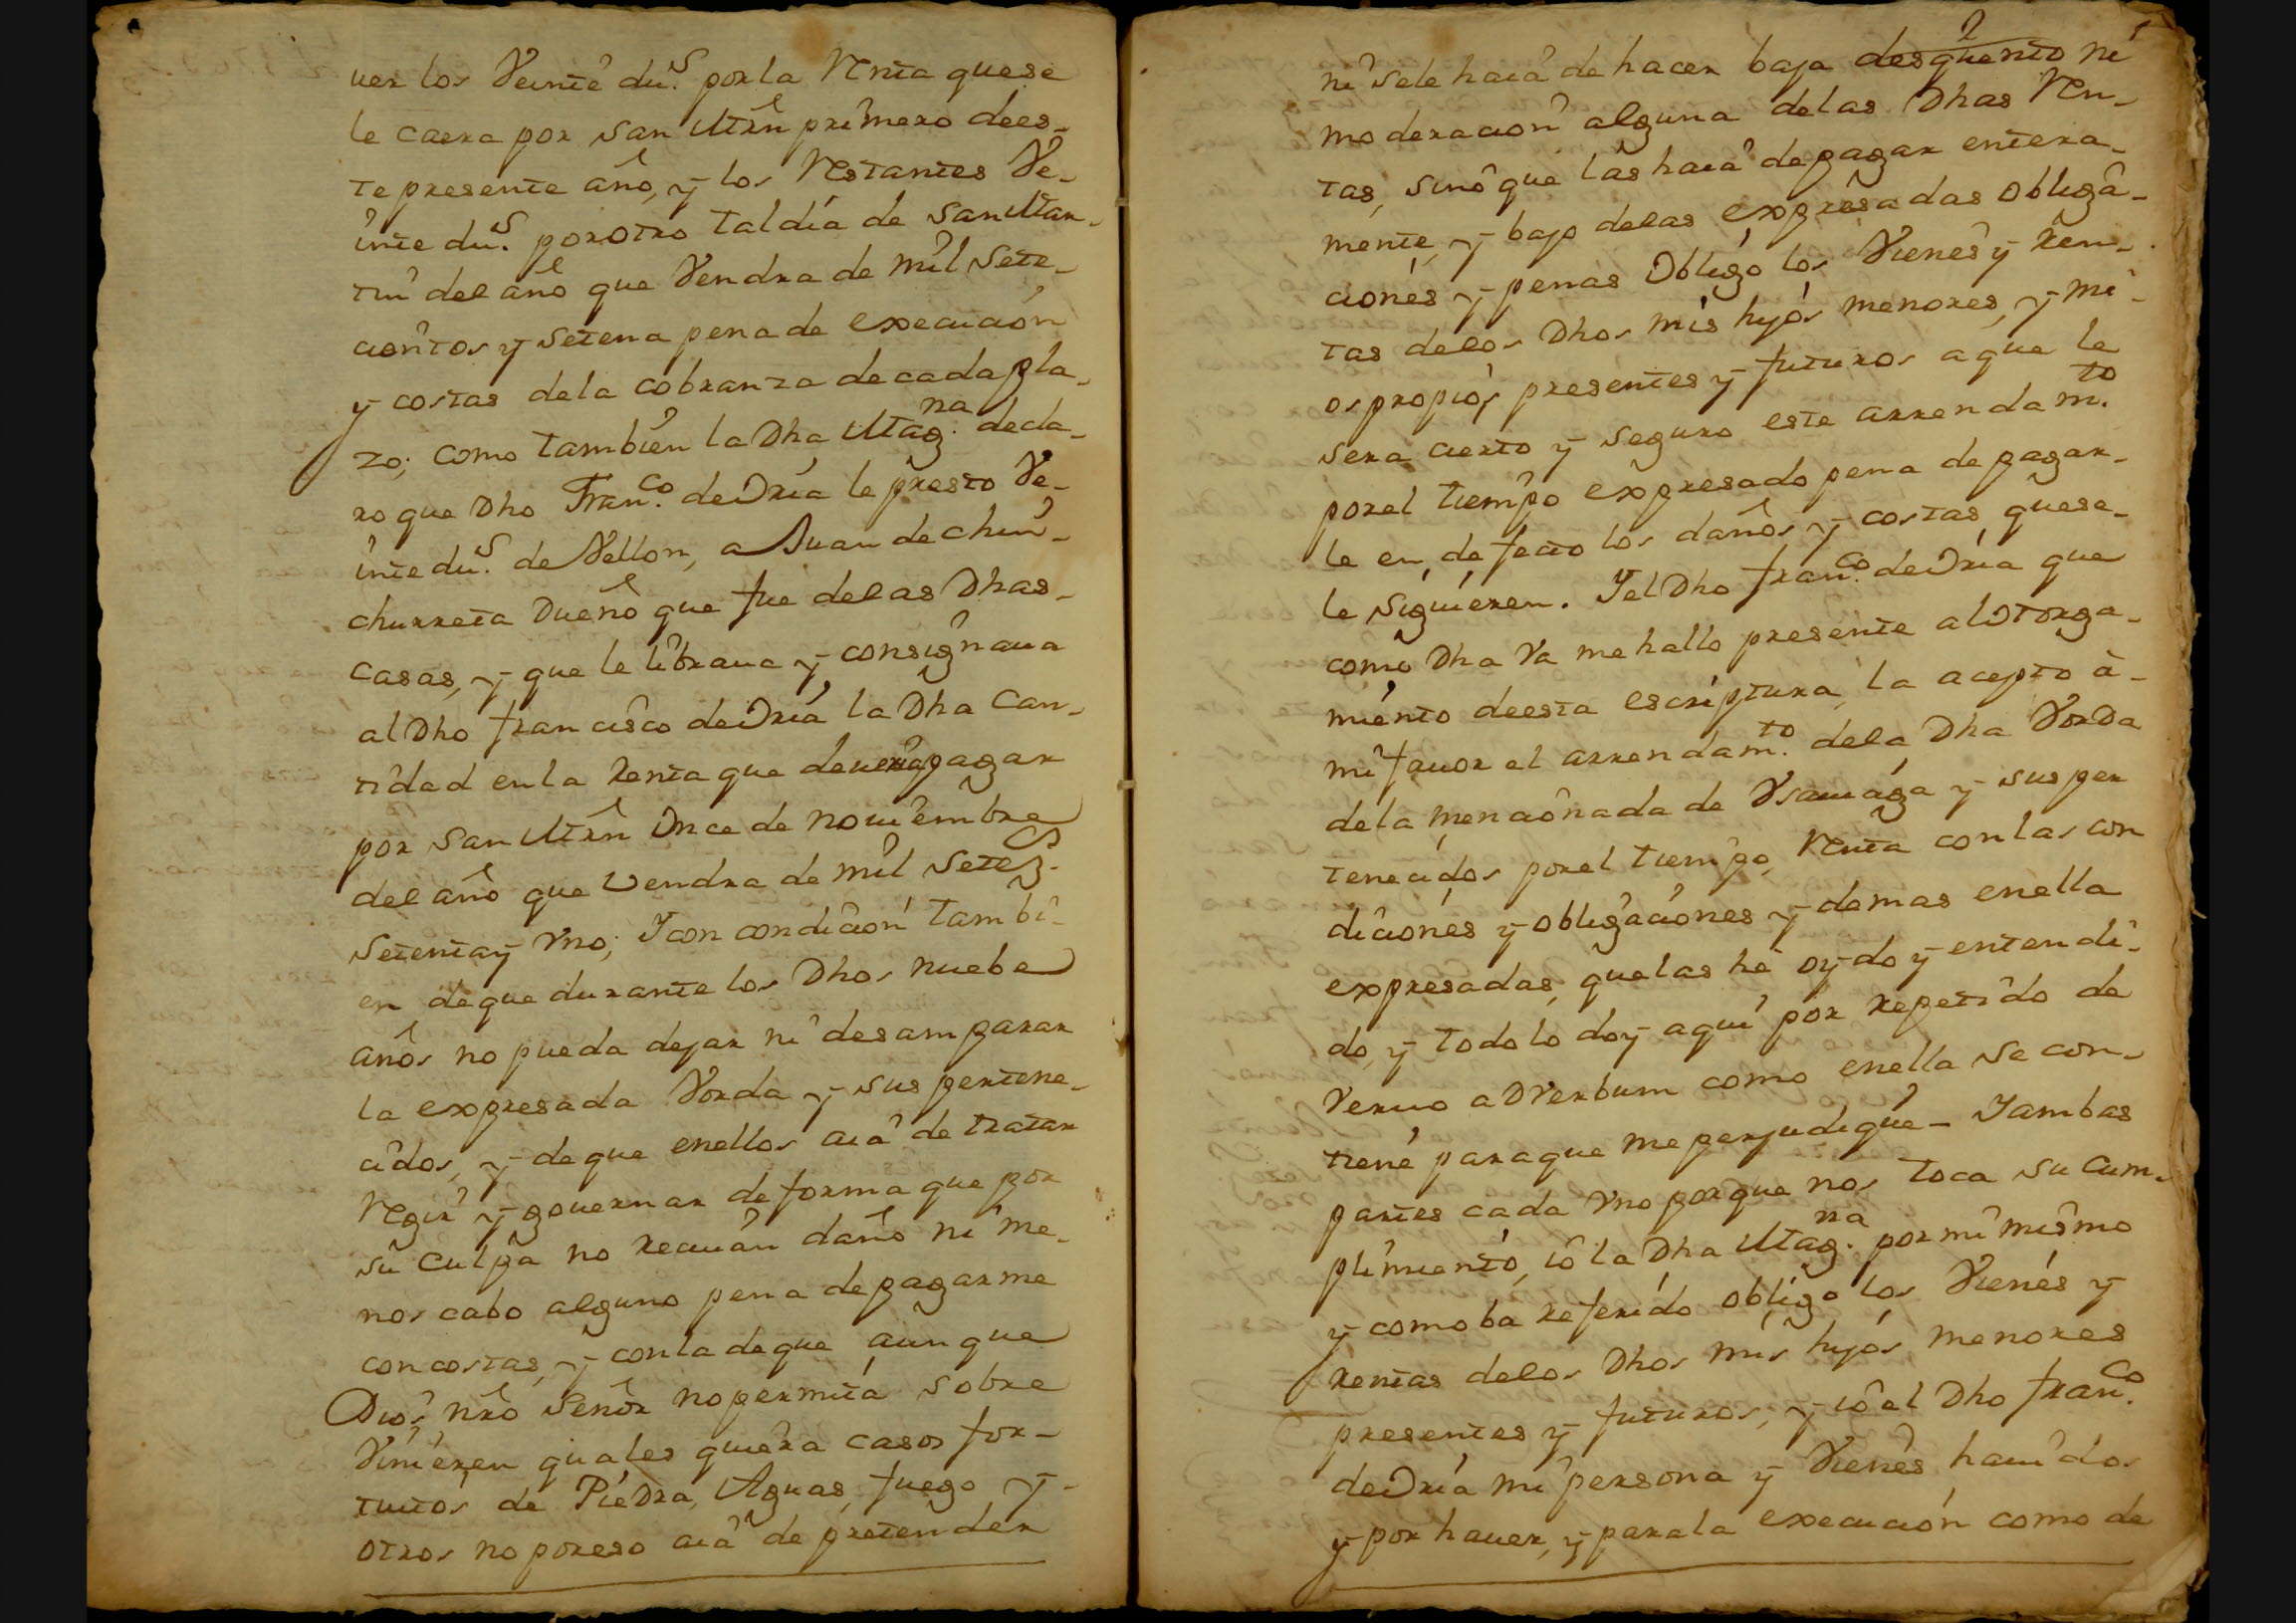 ver los Veinte du.s por la Renta que se
le caera por San Mrñ primero de es-
te presente año, y los Restantes Ve-
inte du.s por otro tal dia de San Mar-
tin del año que Vendra de mil Sete-
cientos y setena pena de execucion
y costas de la cobranza de cada pla-
zo; como tambien la Dha Mag.na decla-
ro que Dho Fran.co de Oria le presto Ve-
inte du.s de Vellon, a Juan de Chin-
churreta Dueño que fue de las Dhas
casas, y que le libraua y consignaua
al Dho francisco de Oria la Dha Can-
tidad en la Renta que deuera pagar
por San Mrñ Once de nouiembre
del año que Vendra de mil Setez.s
Setenta y Vno; Y con condicion tambi-
en de que durante los Dhos nuebe
años no pueda dejar ni desamparar
la expresada Borda y sus pertene-
cidos, y de que en ellos aia de tratar
Regir y gouernar de forma que por
su culpa no reciuan daño ni me-
noscabo alguno pena de pagarme
con costas, y con la de que aunque
Dios nrõ Señor no permita sobre
Vinieren quales quiera casos for-
tuitos de Piedra, Aguas, fuego y
otros no por eso aia de pretender
2
ni se le haia de hacer baja desquento ni
moderacion alguna de las Dhas Ren-
tas, sino que las haia de pagar entera-
mente, y bajo de las expresadas obliga-
ciones y penas Obligo los Vienes y Ren-
tas de los Dhos mis hijos menores, y mi-
os propios presentes y futuros a que le
sera cierto y seguro este arrendam.to
por el tiempo expresado pena de pagar-
le en defecto los daños y costas que se
le siguieren. Y el Dho fran.co de Oria que
como Dha Va me hallo presente al Otorga-
miento de esta escriptura, la acepto à
mi fauor el arrendam.to de la Dha Borda
de la mencionada de Vsauiaga y sus per
tenecidos por el tiempo, Renta con las con
diciones y obligaciones y demas en ella
expresadas, que las hé oydo y entendi-
do, y todo lo doy aqui por repetido de
Veruo adVerbum como en ella se con-
tiene para que me perjudique - Y ambas
partes cada Vno por que nos toca su cum-
plimiento, io la Dha Mag.na por mi mismo
y como ba referido obligo los Vienes y
rentas de los Dhos mis hijos menores
presentes y futuros; y io el Dho fran.co
de Oria mi persona y Vienes hauidos
y por hauer, y para la execucion como de